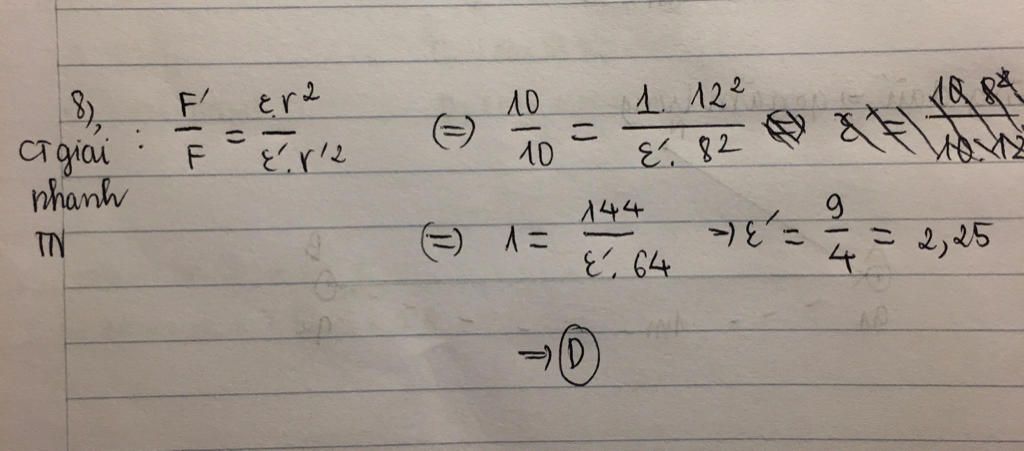 8),
CT giải nhanh TN : F'/F = ε.r²/ε'.r'² (=) 10/10 = 1.12²/ε'.8²
(=) 1 = 144/ε'.64 => ε' = 9/4 = 2,25
=> D